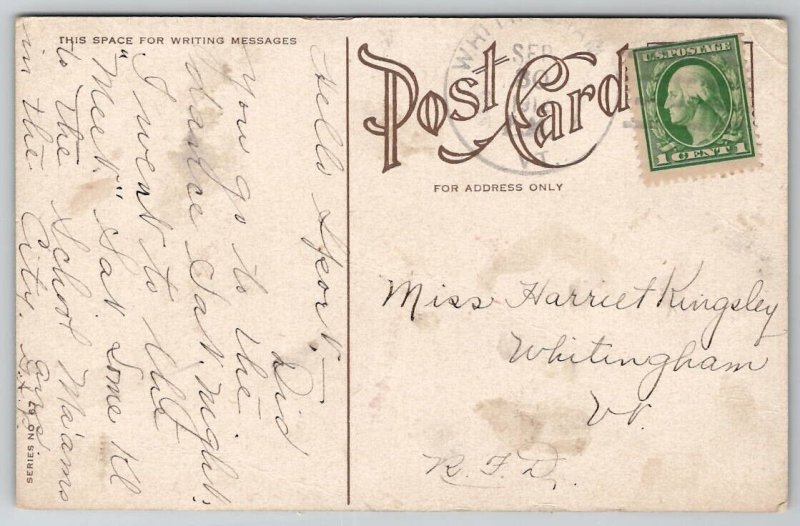 THIS SPACE FOR WRITING MESSAGES
Post Card
FOR ADDRESS ONLY
U.S. POSTAGE
1 CENT 1
SEP
30
Hello Sport,— Did
you go to the
dance Sat. night.
I went to the
"Meet" Sat. Some
to the School Ma'ams
in the City.
Miss Harriet Kingsley
Whitingham
Vt.
R.F.D.
SERIES NO.